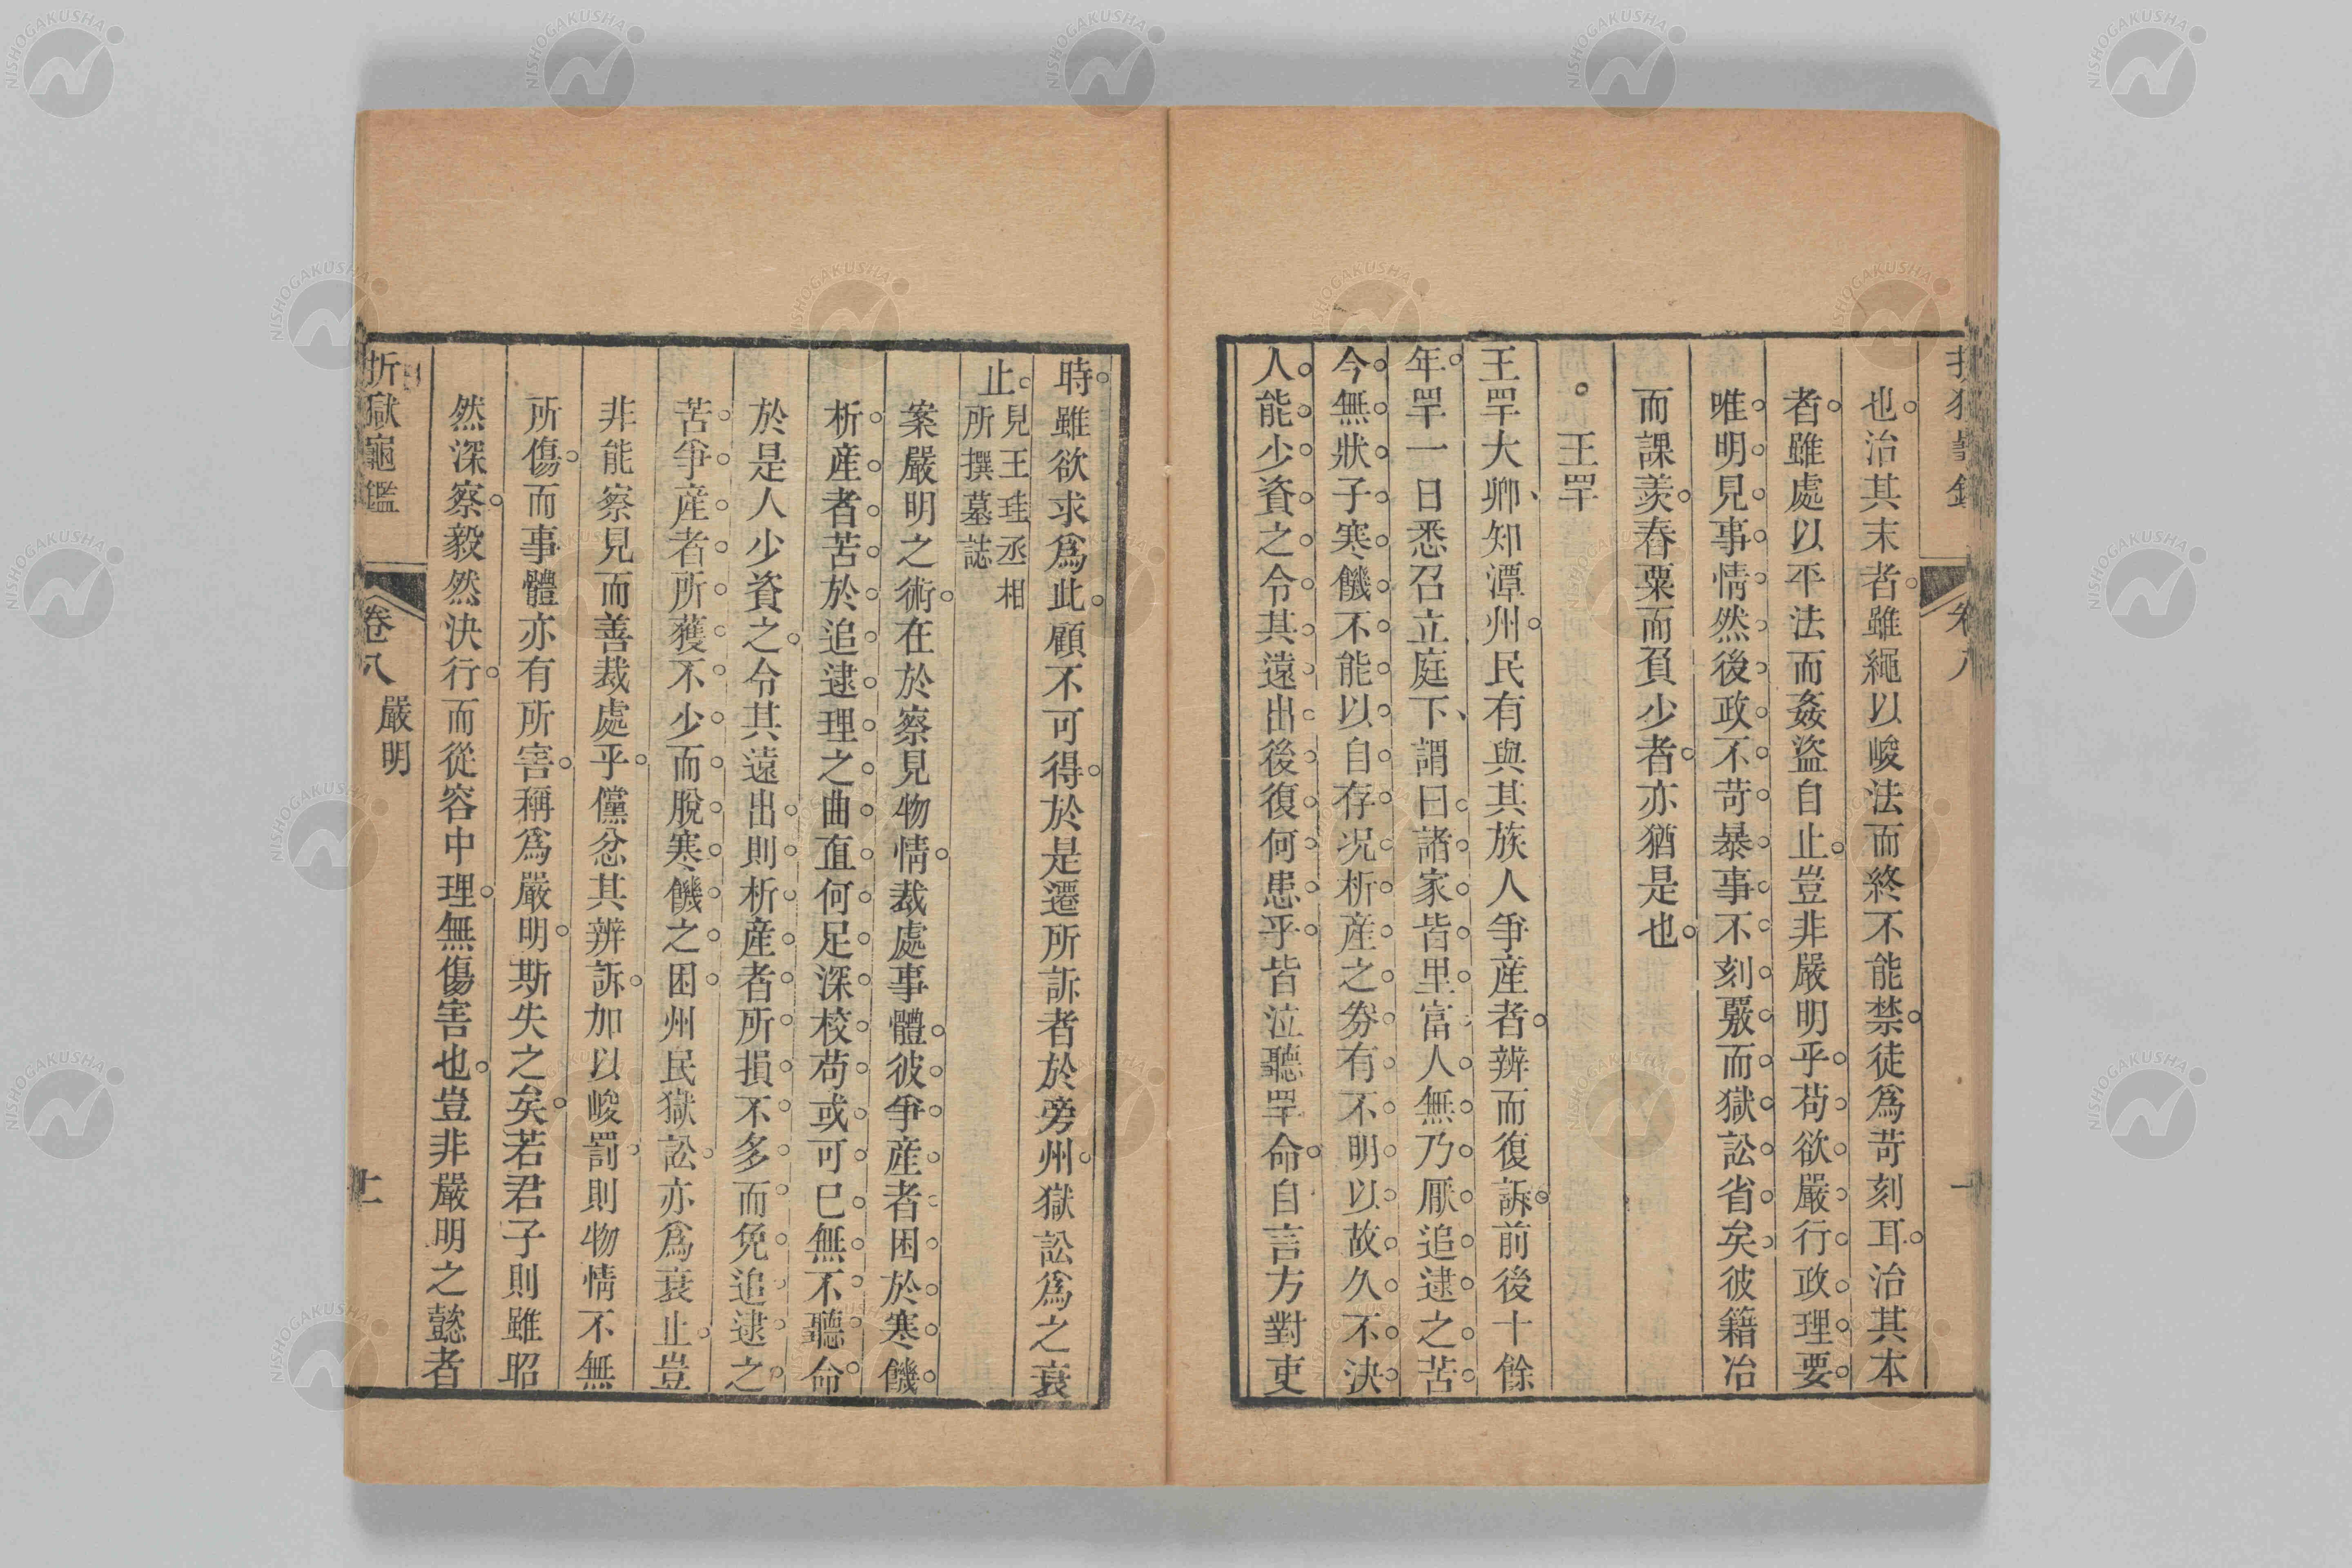 也治其末者雖繩以峻法而終不能禁徒爲苛刻耳治其本
者雖處以平法而姦盜自止豈非嚴明乎苟欲嚴行政理要
唯明見事情然後政不苛暴事不刻覈而獄訟省矣彼籍冶
而課羨舂粟而負少者亦猶是也
王罕
王罕大卿知潭州民有與其族人爭産者辨而復訴前後十餘
年罕一日悉召立庭下謂曰諸家皆里富人無乃厭追逮之苦
今無狀子寒饑不能以自存况析産之劵有不明以故久不決
人能少資之令其遠出後復何患乎皆泣聽罕命自言方對吏
時雖欲求爲此顧不可得於是遷所訴者於旁州獄訟爲之衰
止見王珪丞相所撰墓誌
案嚴明之術在於察見物情裁處事體彼爭産者困於寒饑
析産者苦於追逮理之曲直何足深校苟或可已無不聽命
於是人少資之令其遠出則析産者所損不多而免追逮之
苦爭産者所獲不少而脫寒饑之困州民獄訟亦爲衰止豈
非能察見而善裁處乎儻忿其辨訴加以峻罰則物情不無
所傷而事體亦有所害稱爲嚴明斯失之矣若君子則雖昭
然深察毅然決行而從容中理無傷害也豈非嚴明之懿者
折獄龜鑑
卷八
嚴明
NISHOGAKUSHA